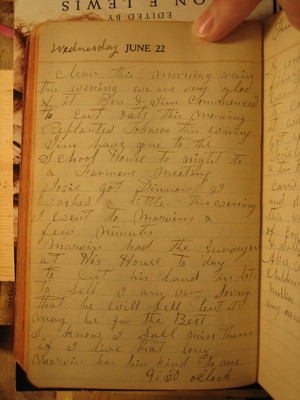 ON F LEWIS
EDITED BY
Wednesday JUNE 22
Clear this morning rain
this evening we are very glad
of it Ben & Jim Commenced
to Cut oats this morning
Replanted Tobacco this evening
Jim have gone to the
School House to night to
a Farmers Meeting
Josie got Dinner I
washed a little this evening
I went to Marvins a
few minutes
Marvin had the Surveyor
at His House to day
to Cut his land in lots
to Sell I am very Sorry
that he will Sell but it
may be for the Best
I know I Shall miss them
if I live that long
Marvin has bin kind to me
9:30 oclock